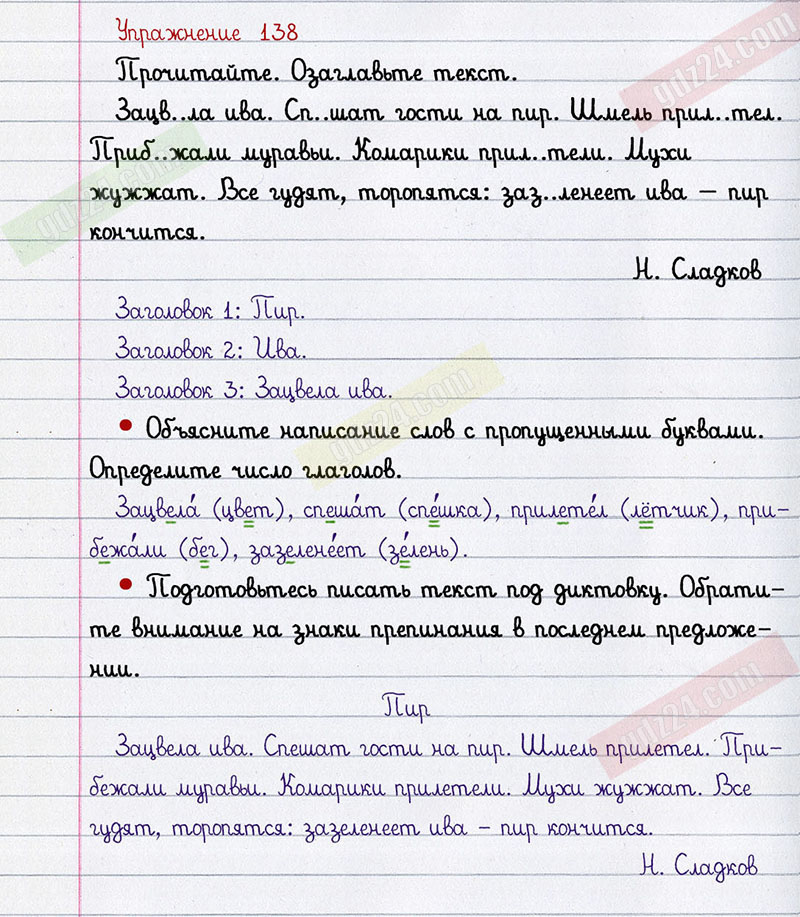 Упражнение 138
Прочитайте. Озаглавьте текст.
Зацв..ла ива. Сп..шат гости на пир. Шмель прил..тел.
Приб..жали муравьи. Комарики прил..тели. Мухи
жужжат. Все гудят, торопятся: заз..ленеет ива – пир
кончится.
Н. Сладков
Заголовок 1: Пир.
Заголовок 2: Ива.
Заголовок 3: Зацвела ива.
• Объясните написание слов с пропущенными буквами.
Определите число глаголов.
Зацвела́ (цвет), спеша́т (спе́шка), прилете́л (лётчик), при-
бежа́ли (бег), зазелене́ет (зе́лень).
• Подготовьтесь писать текст под диктовку. Обрати-
те внимание на знаки препинания в последнем предложе-
нии.
Пир
Зацвела ива. Спешат гости на пир. Шмель прилетел. При-
бежали муравьи. Комарики прилетели. Мухи жужжат. Все
гудят, торопятся: зазеленеет ива – пир кончится.
Н. Сладков
gdz24.com
gdz24.com
gdz24.com
gdz24.com